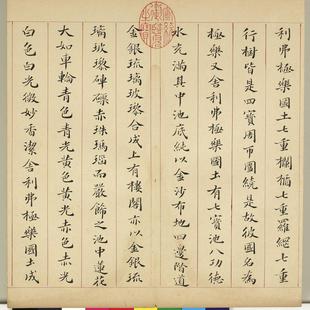 利弗極樂國土七重欄楯七重羅網七重
行樹皆是四寶周帀圍繞是故彼國名為
極樂又舍利弗極樂國土有七寶池八功德
水充滿其中池底純以金沙布地四邊階道
金銀琉璃玻瓈合成上有樓閣亦以金銀琉
璃玻瓈硨磲赤珠瑪瑙而嚴飾之池中蓮花
大如車輪青色青光黃色黃光赤色赤光
白色白光微妙香潔舍利弗極樂國土成